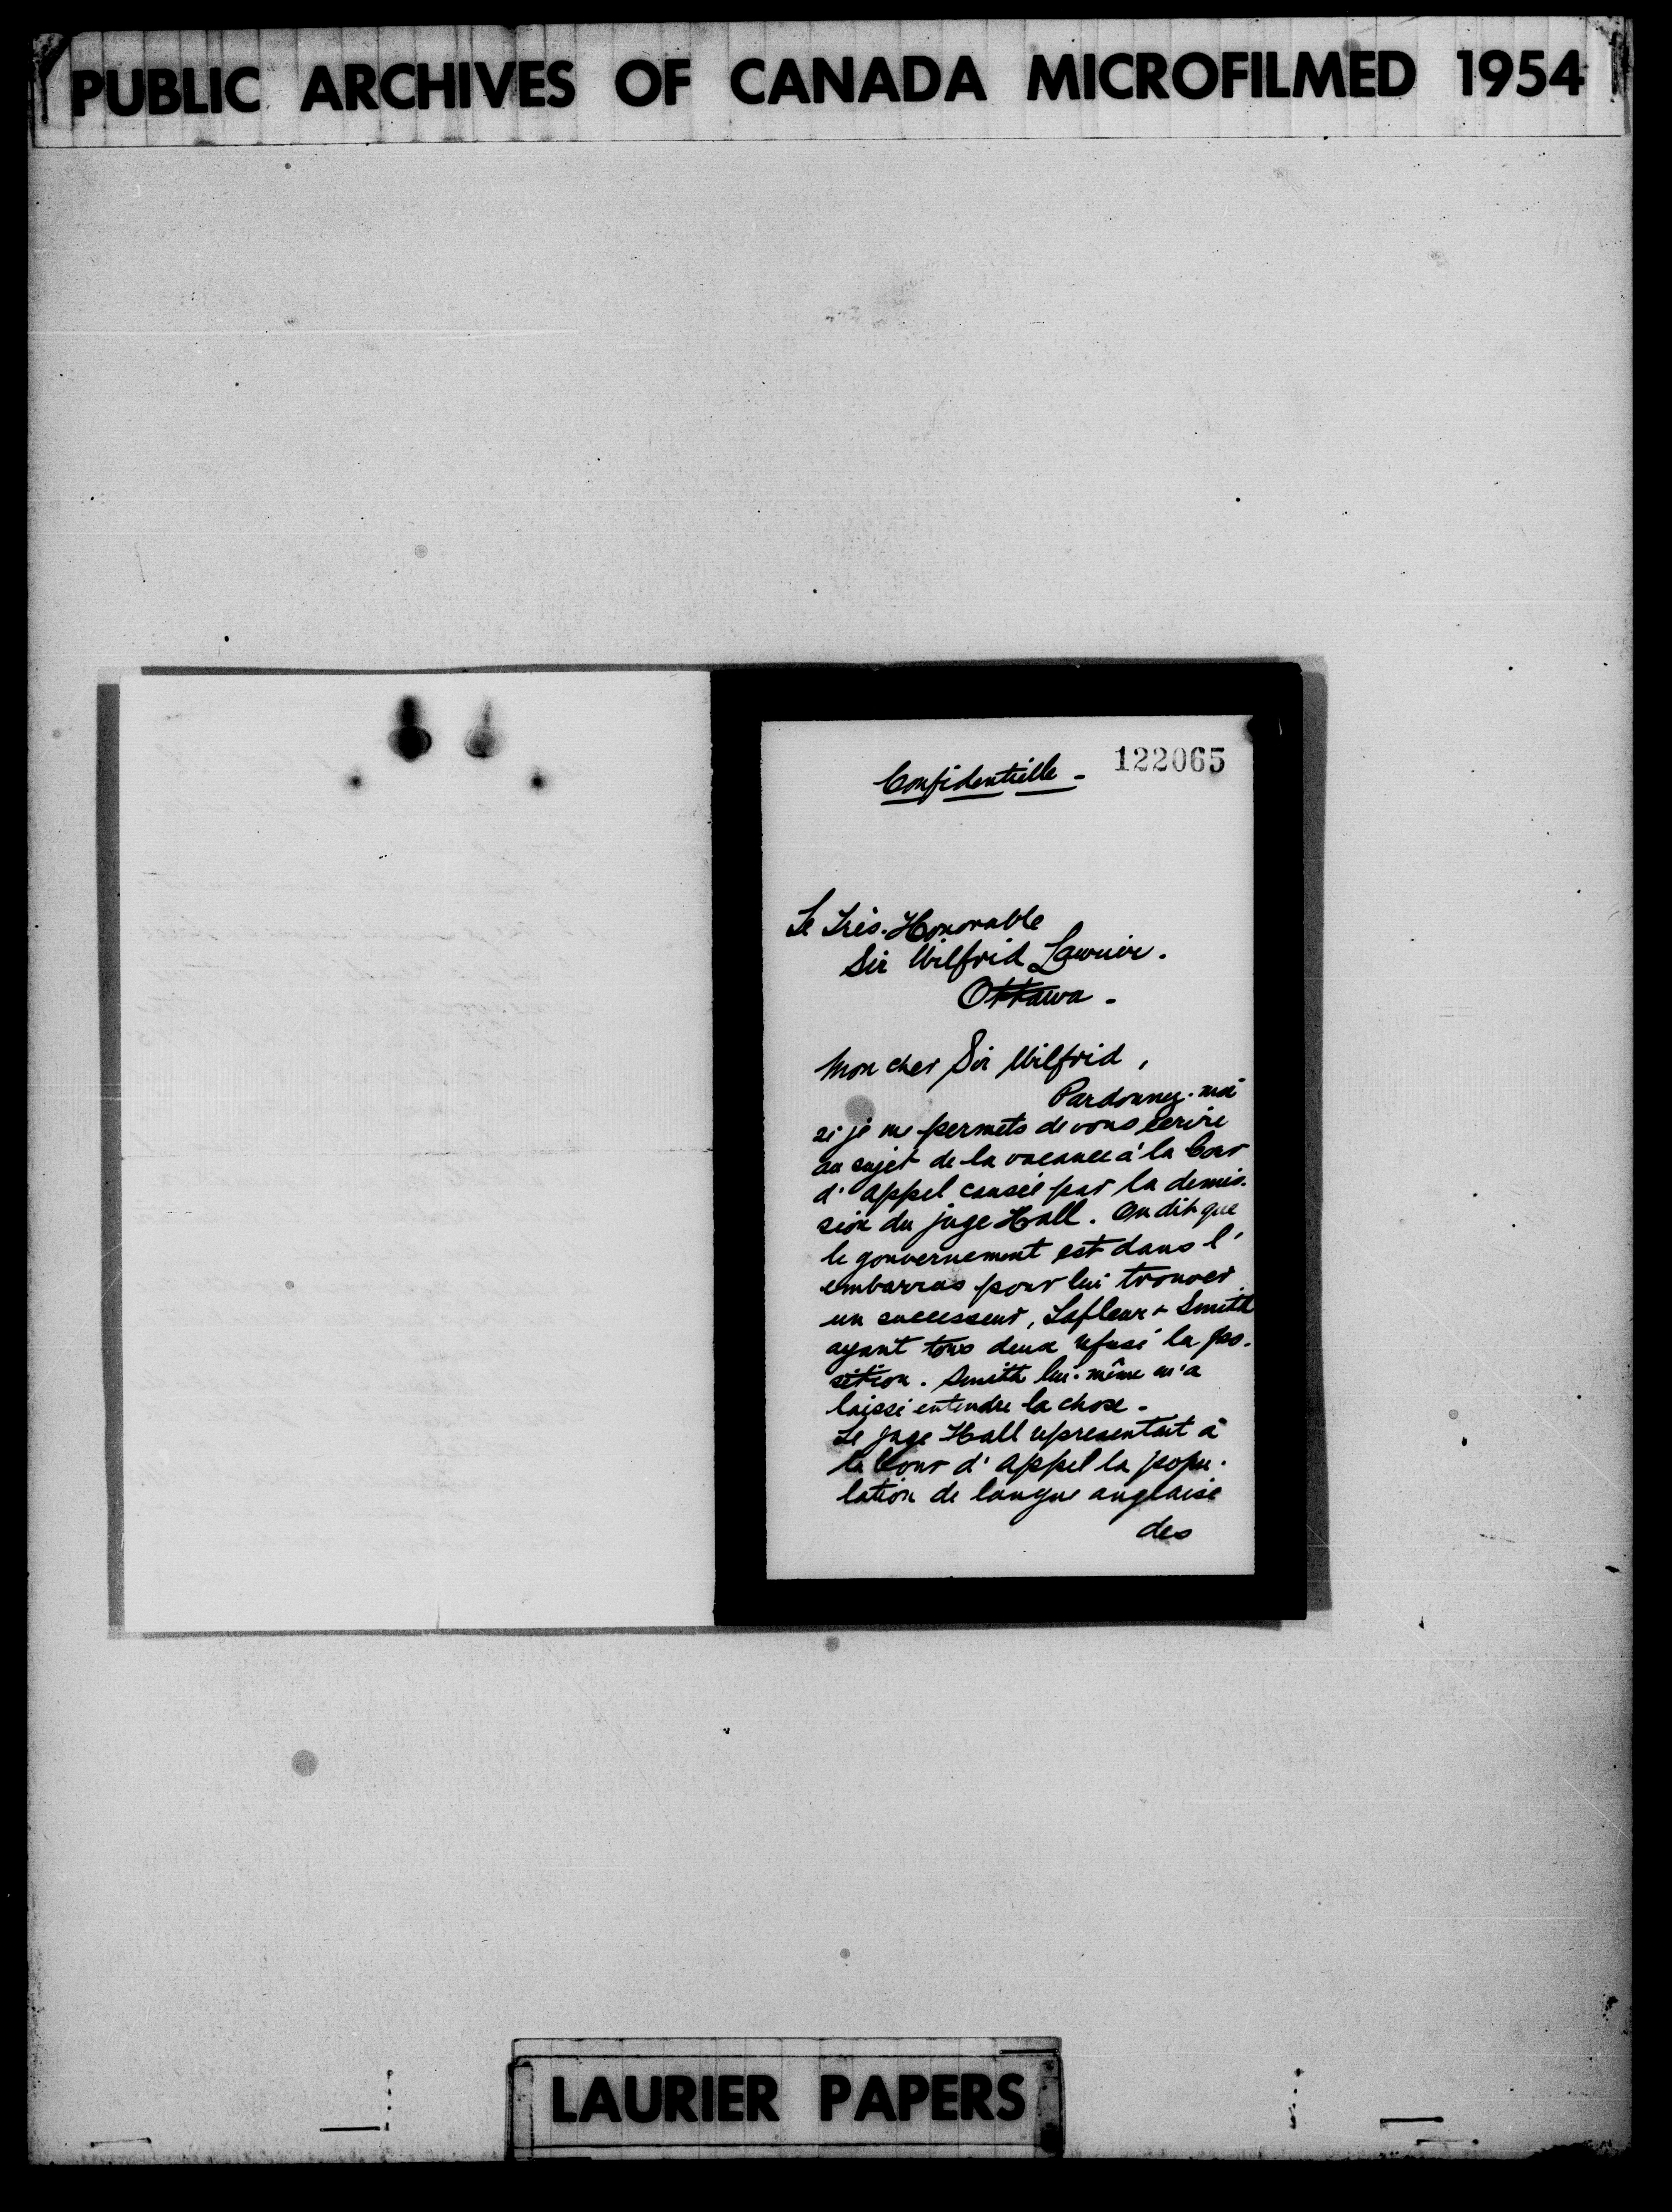 PUBLIC ARCHIVES OF CANADA MICROFILMED 1954
122065
Confidentielle -
Le Très-Honorable
Sir Wilfrid Laurier.
Ottawa -
Mon cher Sir Wilfrid,
Pardonnez-moi
si je me permets de vous écrire
au sujet de la vacance à la Cour
d'Appel causée par la démis-
sion du juge Hall. On dit que
le gouvernement est dans l'
embarras pour lui trouver
un successeur, Lafleur & Smith
ayant tous deux refusé la po-
sition. Smith lui-même m'a
laissé entendre la chose -
Le juge Hall représentait à
la Cour d'Appel la popu-
lation de langue anglaise
des
LAURIER PAPERS